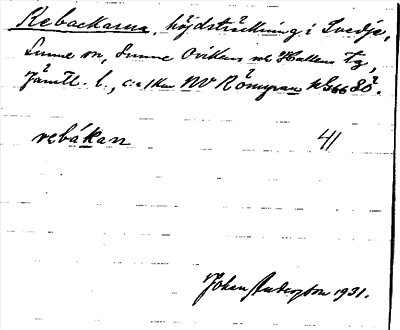 Rebackarna, höjdsträckning i Svedje,
Sunne sn, Sunne Ovikens o. Hallens tg,
Jämtl. l., c:a 1 km NV Römyran kS66 SÖ.
rebákan 41
Johan Anderzon 1931.